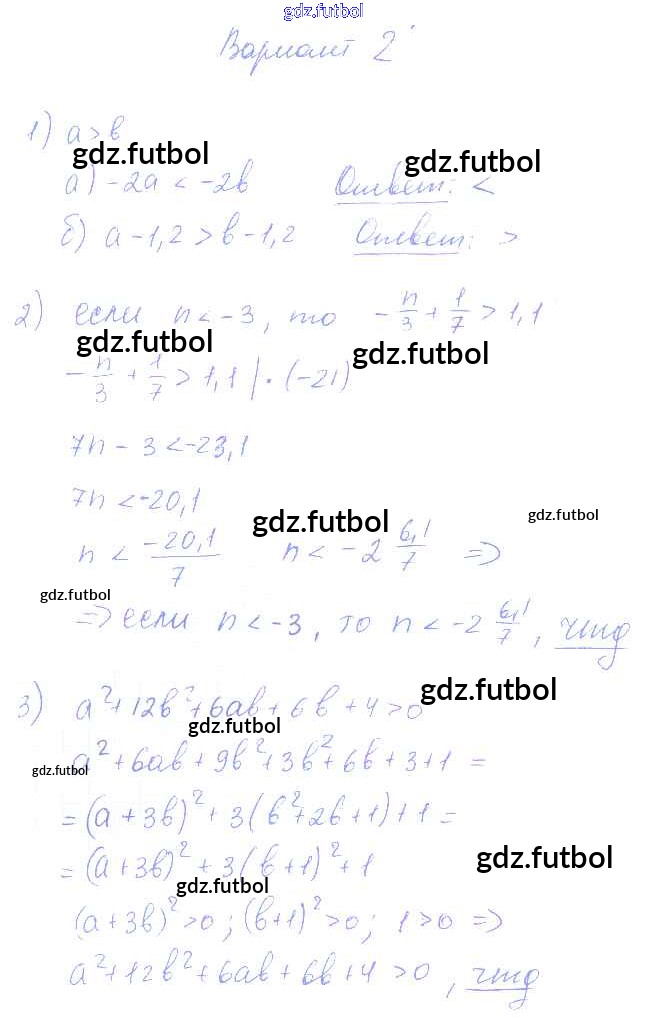 gdz.futbol
Вариант 2
1) a > b
gdz.futbol gdz.futbol
а) -2a < -2b Ответ: <
б) a - 1,2 > b - 1,2 Ответ: >
2) если n < -3, то -n/3 + 1/7 > 1,1
gdz.futbol gdz.futbol
-n/3 + 1/7 > 1,1 | · (-21)
7n - 3 < -23,1
7n < -20,1
gdz.futbol gdz.futbol
n < -20,1/7 n < -2 6,1/7 =>
gdz.futbol
=> если n < -3, то n < -2 6,1/7, чтд
3) a² + 12b² + 6ab + 6b + 4 > 0
gdz.futbol
gdz.futbol
a² + 6ab + 9b² + 3b² + 6b + 3 + 1 =
gdz.futbol
= (a + 3b)² + 3(b² + 2b + 1) + 1 =
= (a + 3b)² + 3(b + 1)² + 1
gdz.futbol
gdz.futbol
(a + 3b)² > 0; (b + 1)² > 0; 1 > 0 =>
a² + 12b² + 6ab + 6b + 4 > 0, чтд